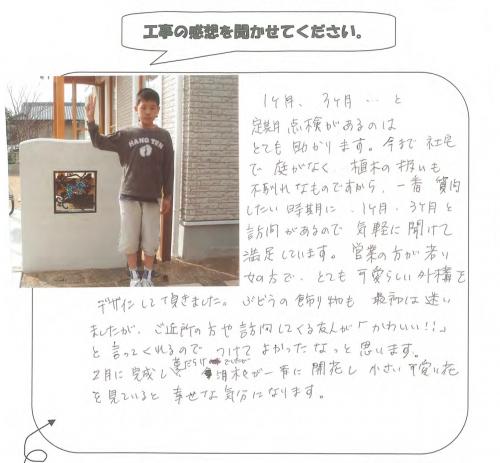 工事の感想を聞かせてください。
HANG TEN
1ヶ月、3ヶ月…と
定期点検があるのは
とても助かります。今まで社宅
で庭がなく、植木の扱いも
不馴れなものですから、一番質問
したい時期に、1ヶ月、3ヶ月と
訪問があるので気軽に聞けて
満足しています。営業の方が若い
女の方で、とても可愛らしい外構を
デザインして頂きました。ぶどうの飾り物も最初は迷い
ましたが、ご近所の方や訪問してくる友人が「かわいい!!」
と言ってくれるのでつけてよかったなっと思います。
2月に完成し 芽だらけ 植木が一斉に開花し小さい可愛い花
を見ていると幸せな気分になります。